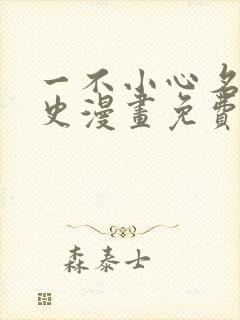 一不小心名
史漫畫免費
森泰士